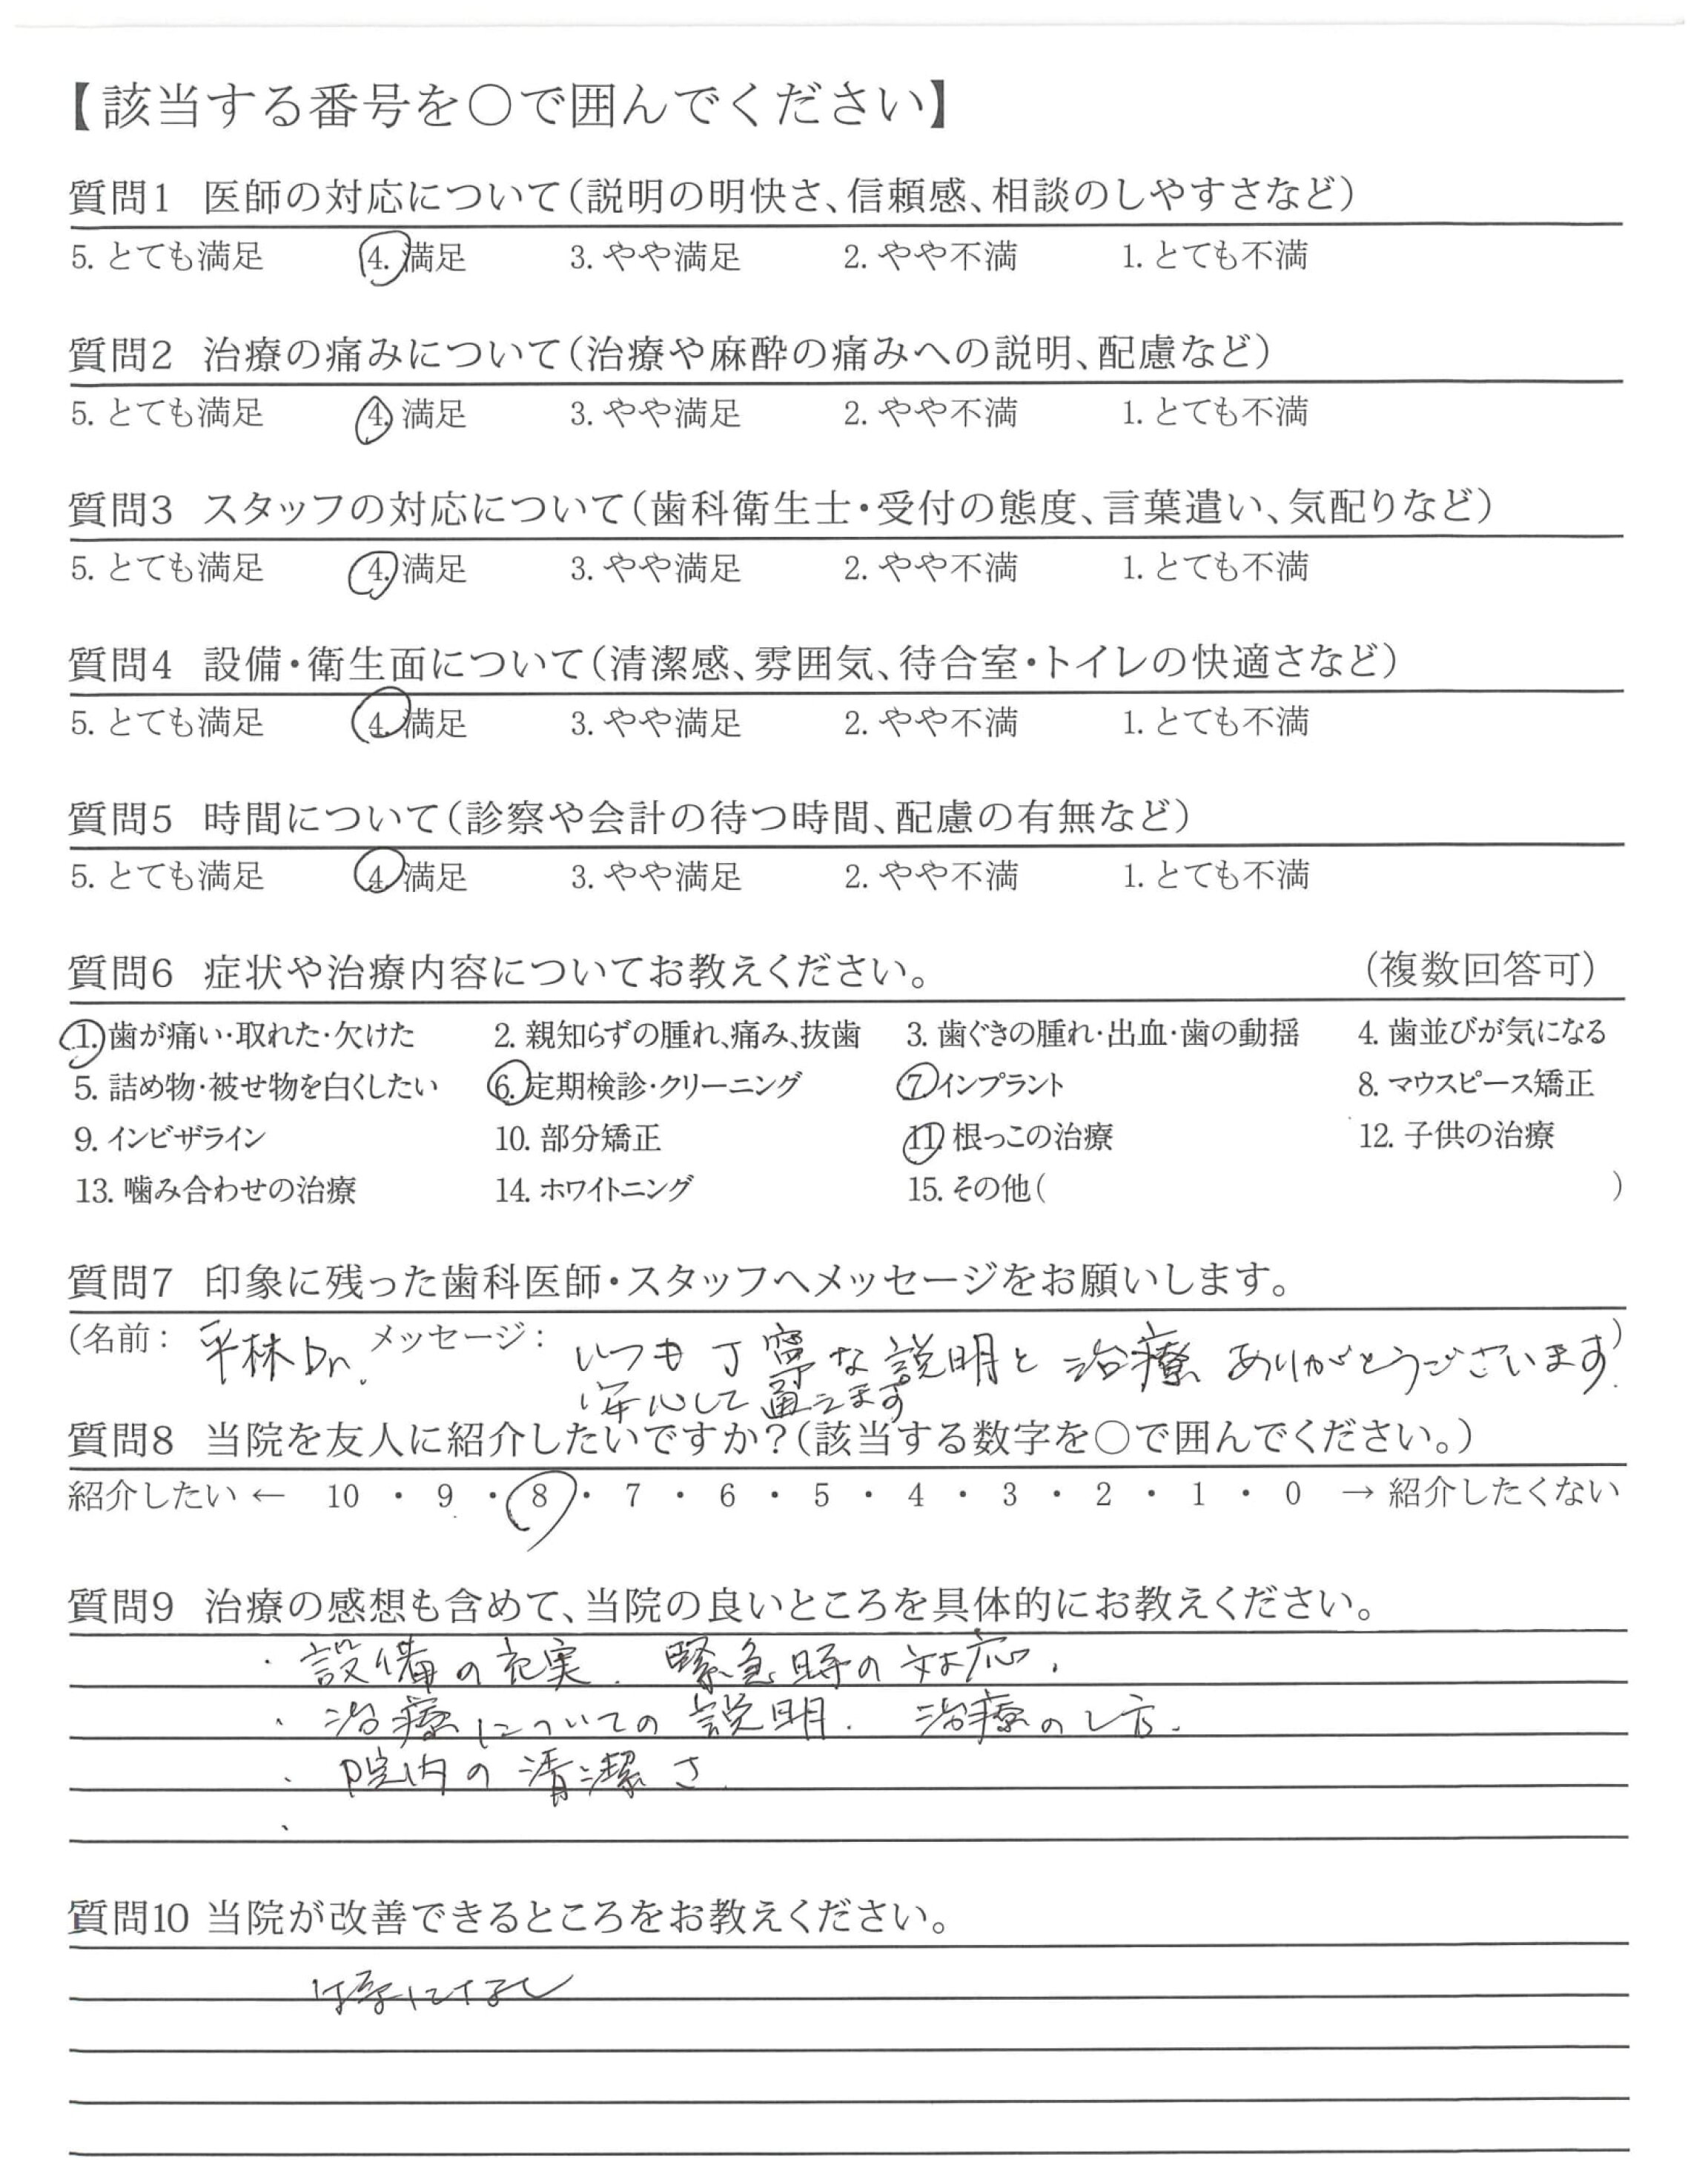 【該当する番号を○で囲んでください】
質問1 医師の対応について(説明の明快さ、信頼感、相談のしやすさなど)
5. とても満足 4. 満足 3. やや満足 2. やや不満 1. とても不満
質問2 治療の痛みについて(治療や麻酔の痛みへの説明、配慮など)
5. とても満足 4. 満足 3. やや満足 2. やや不満 1. とても不満
質問3 スタッフの対応について(歯科衛生士・受付の態度、言葉遣い、気配りなど)
5. とても満足 4. 満足 3. やや満足 2. やや不満 1. とても不満
質問4 設備・衛生面について(清潔感、雰囲気、待合室・トイレの快適さなど)
5. とても満足 4. 満足 3. やや満足 2. やや不満 1. とても不満
質問5 時間について(診察や会計の待つ時間、配慮の有無など)
5. とても満足 4. 満足 3. やや満足 2. やや不満 1. とても不満
質問6 症状や治療内容についてお教えください。 (複数回答可)
1. 歯が痛い・取れた・欠けた 2. 親知らずの腫れ、痛み、抜歯 3. 歯ぐきの腫れ・出血・歯の動揺 4. 歯並びが気になる
5. 詰め物・被せ物を白くしたい 6. 定期検診・クリーニング 7. インプラント 8. マウスピース矯正
9. インビザライン 10. 部分矯正 11. 根っこの治療 12. 子供の治療
13. 噛み合わせの治療 14. ホワイトニング 15. その他( )
質問7 印象に残った歯科医師・スタッフへメッセージをお願いします。
(名前: 平林Dr. メッセージ: いつも丁寧な説明と治療ありがとうございます)
安心して通えます
質問8 当院を友人に紹介したいですか?(該当する数字を○で囲んでください。)
紹介したい ← 10 ・ 9 ・ 8 ・ 7 ・ 6 ・ 5 ・ 4 ・ 3 ・ 2 ・ 1 ・ 0 → 紹介したくない
質問9 治療の感想も含めて、当院の良いところを具体的にお教えください。
・設備の充実. 緊急時の対応.
・治療についての説明. 治療のし方.
・院内の清潔さ.
質問10 当院が改善できるところをお教えください。